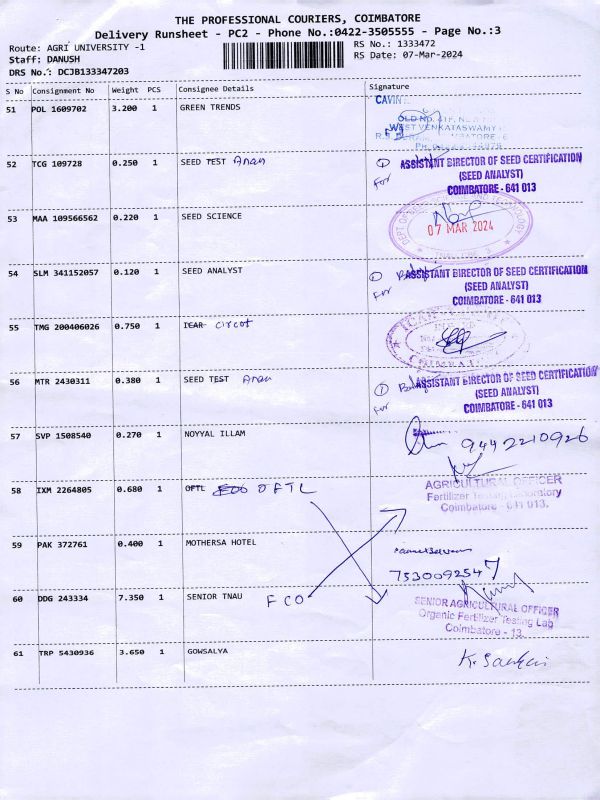 THE PROFESSIONAL COURIERS, COIMBATORE
Delivery Runsheet - PC2 - Phone No.:0422-3505555 - Page No.:3
Route: AGRI UNIVERSITY -1
RS No.: 1333472
Staff: DANUSH
RS Date: 07-Mar-2024
DRS No.: DCJB133347203
S No Consignment No Weight PCS Consignee Details Signature
51 POL 1609702 3.200 1 GREEN TRENDS
OLD NO.
WEST VENKATASWAMY
52 TCG 109728 0.250 1 SEED TEST
For ASSISTANT DIRECTOR OF SEED CERTIFICATION
(SEED ANALYST)
COIMBATORE - 641 013
53 MAA 109566562 0.220 1 SEED SCIENCE
07 MAR 2024
54 SLM 341152057 0.120 1 SEED ANALYST
For ASSISTANT DIRECTOR OF SEED CERTIFICATION
(SEED ANALYST)
COIMBATORE - 641 013
55 TMG 200406026 0.750 1 ICAR circot
56 MTR 2430311 0.380 1 SEED TEST
For ASSISTANT DIRECTOR OF SEED CERTIFICATION
(SEED ANALYST)
COIMBATORE - 641 013
57 SVP 1508540 0.270 1 NOYYAL ILLAM
9442210926
58 IXM 2264805 0.680 1 OFTL OFTL
AGRICULTURAL OFFICER
Fertilizer Testing Laboratory
Coimbatore - 641 013.
59 PAK 372761 0.400 1 MOTHERSA HOTEL
7530092547
60 DDG 243334 7.350 1 SENIOR TNAU FCO
SENIOR AGRICULTURAL OFFICER
Organic Fertilizer Testing Lab
Coimbatore - 13.
61 TRP 5430936 3.650 1 GOWSALYA